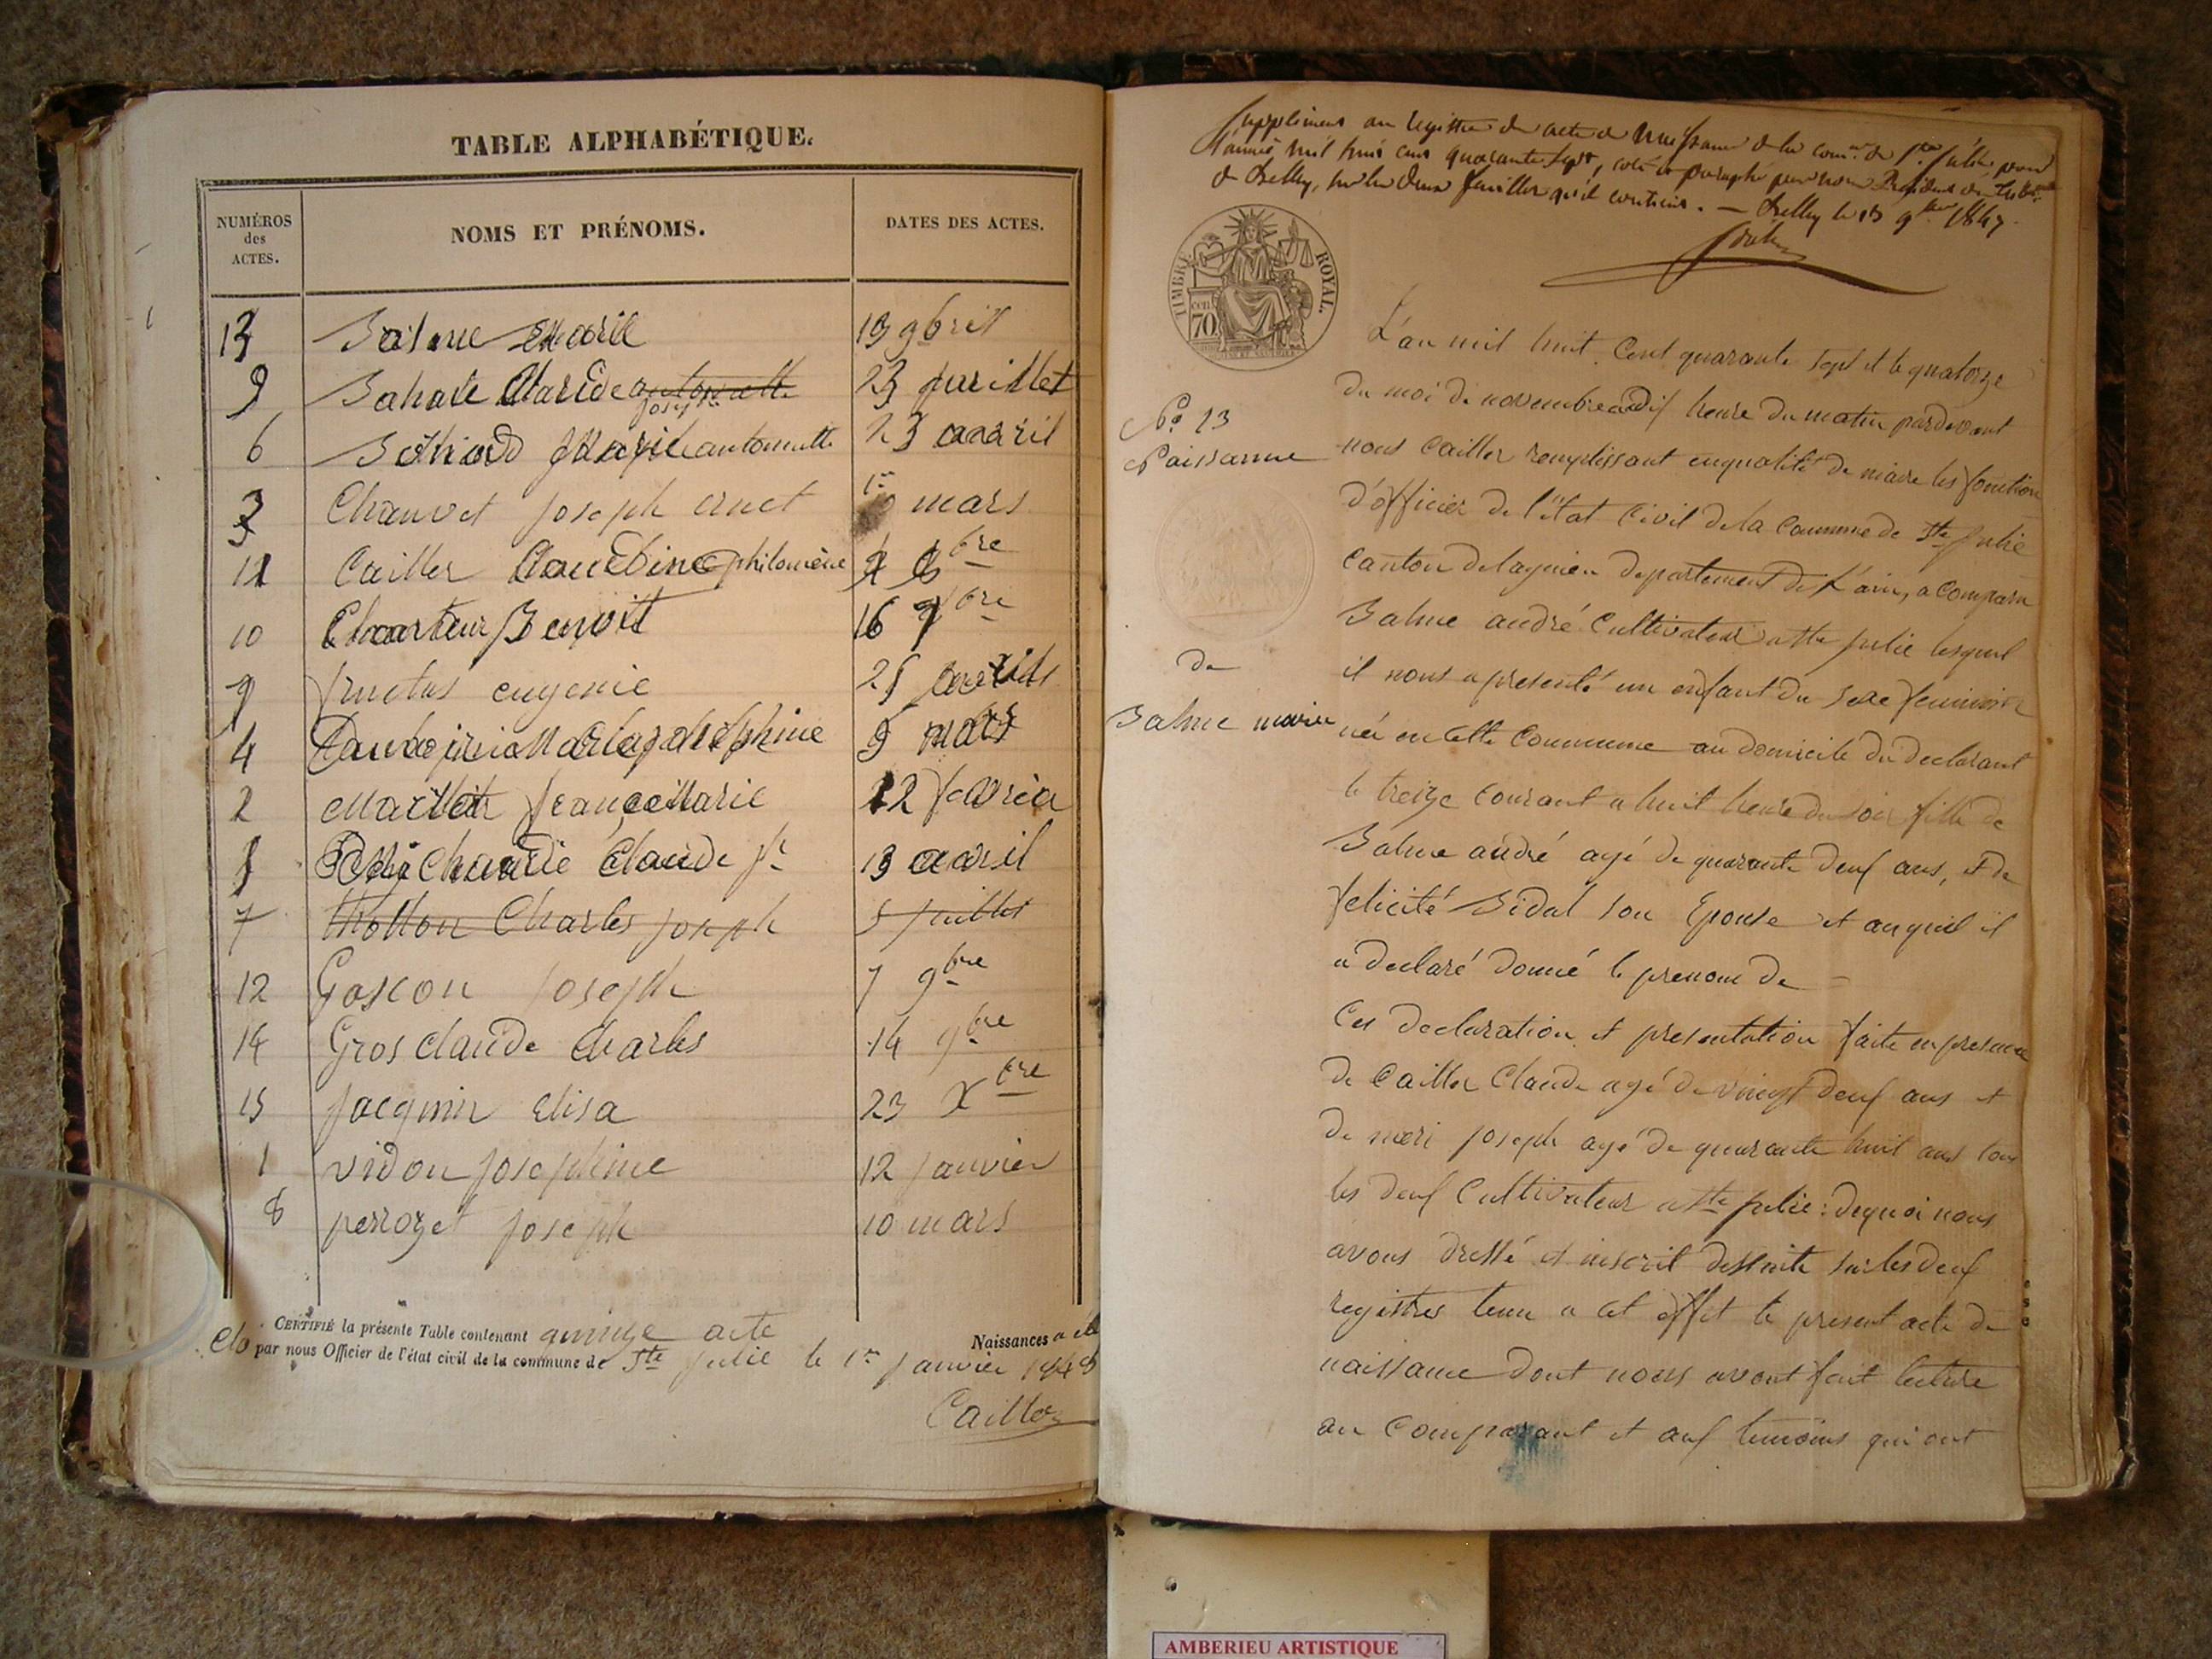 TABLE ALPHABÉTIQUE.
NUMÉROS des ACTES.
NOMS ET PRÉNOMS.
DATES DES ACTES.
13 Balme Marie 13 9bre
9 23 juillet
6 antoinette 23 avril
3 Chanvet joseph 1er mars
11 Cailler Claudine philomène
10 Benoit 16 bre
9 fructus eugenie
4 9 mars
2 Maillet françois Marie 12 fevrier
Claude 13 avril
7 Charles joseph 5 juillet
12 Gascon joseph 7 9bre
14 Gros claude charles 14 9bre
15 jacquin elisa 23 Xbre
1 vidon josephine 12 janvier
8 perrozet joseph 10 mars
CERTIFIÉ la présente Table contenant quinze acte Naissances a été
clo par nous Officier de l'état civil de la commune de Ste julie le 1er janvier 1848
Cailler
Supplément au registre des actes de naissance de la comne de Ste Julie, pour
l'année mil huit cent quarante sept, coté et paraphé par nous Président du Tribal
de Belley, sur les deux feuilles qu'il contient. — Belley le 13 9bre 1847.
TIMBRE ROYAL.
cen 70
L'an mil huit Cent quarante sept et le quatorze
du moi de novembre a dix heure du matin pardevant
No 13
Naissance
nous Cailler remplissant en qualité de maire les fonction
d'officier de l'état Civil de la Commune de Ste julie
Canton de lagnieu departement de L'ain, a comparu
Balme andré Cultivateur a Ste julie lequel
de
il nous a presenté un enfant du sexe feminin
Balme marie
née en cette Commune au domicile du declarant
le treize courant a huit heure du soir fille de
Balme andré agé de quarante deux ans, et de
felicité Bidal son Epouse et auquel il
a declaré donné le prenom de —
Ces declaration et presentation faite en presence
de Cailler Claude agé de vingt deux ans et
de meri joseph agé de quarante huit ans tous
les deux Cultivateur a Ste julie: dequoi nous
avons dressé et inscrit desuite sur les deux
registres tenu a cet effet le present acte de
naissance dont nous avont fait lecture
au Comparant et aux temoins qui ont
AMBERIEU ARTISTIQUE